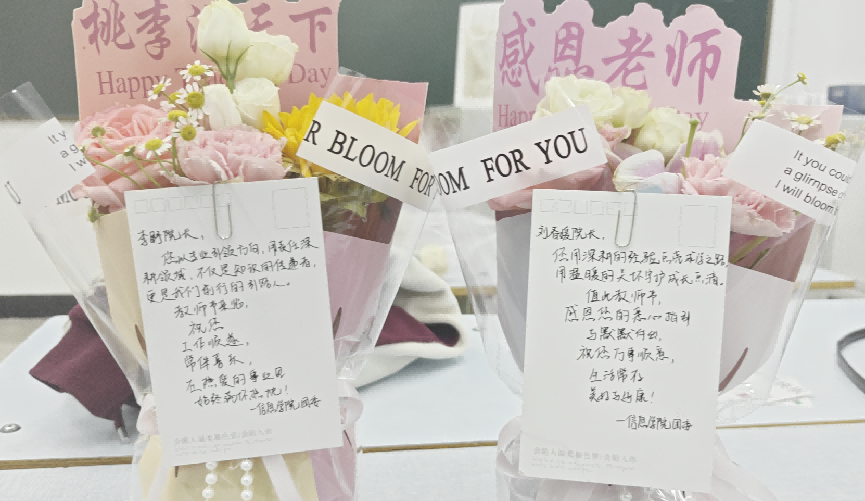 桃李满天下
Happy Day
感恩老师
Happy Day
R BLOOM FOR
OOM FOR YOU
It y
a g
I w
It you could
a glirnpse
I will bloom
李院长，
您以专业引领方向，用责任深
耕领域，不仅是知识的传递者，
更是我们前行的引路人。
教师节来临，
祝您
工作顺遂，
常伴喜乐，
在热爱的事业里
始终满怀热忱！
—信息学院团委
刘春媛院长，
您用深耕的经验点亮求学之路，
用温暖的关怀守护成长点滴。
值此教师节，
感恩您的悉心指引
与默默付出，
祝您万事顺意，
生活常存
美好与安康！
—信息学院团委